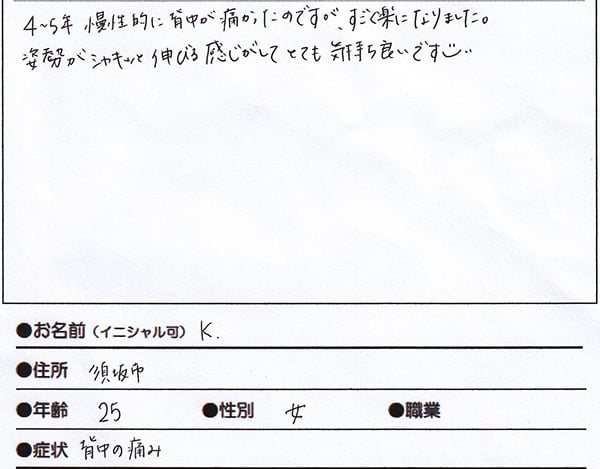 4～5年 慢性的に背中が痛かったのですが、すごく楽になりました。
姿勢がシャキッと伸びる感じがしてとても気持ち良いです
●お名前（イニシャル可） K.
●住所 須坂市
●年齢 25 ●性別 女 ●職業
●症状 背中の痛み